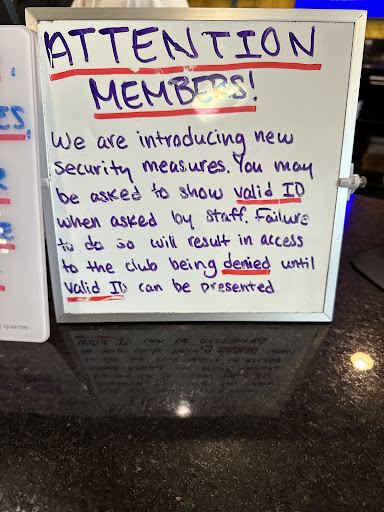 ATTENTION
MEMBERS!
We are introducing new
security measures. You may
be asked to show valid ID
when asked by staff. Failure
to do so will result in access
to the club being denied until
valid ID can be presented
ES
quartet